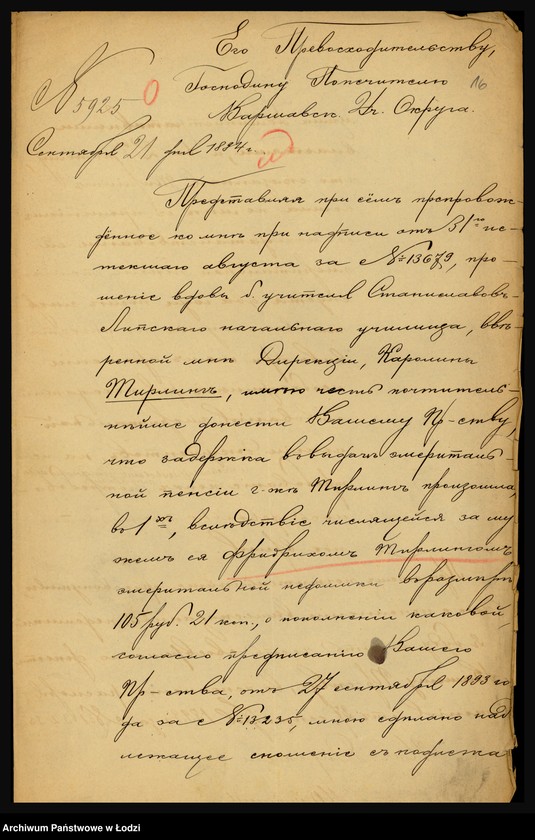 Его Превосходительству,
Господину Попечителю
16
Варшавск. Уч. Округа.
№ 5925
Сентября 21 дня 1894 г.
Представляя при сёмъ препровож-
дённое ко мнѣ при надписи отъ 31го ис-
текшаго августа за № 13679, про-
шеніе вдовы б. учителя Станиславовъ-
Липскаго начальнаго училища, ввѣ-
ренной мнѣ Дирекціи, Каролины
Тирлингъ, имѣю честь почтитель-
нѣйше донести Вашему Пр-ству,
что задержка въ выдачѣ эмериталь-
ной пенсіи г-жѣ Тирлингъ произошла,
во 1хъ, вслѣдствіе числящейся за му-
жемъ ея Фридрихомъ Тирлингомъ
эмеритальной недоимки въ размѣрѣ
105 руб. 21 коп., о пополненіи каковой,
согласно предписанію Вашего
Пр-ства, отъ 27 сентября 1893 го-
да за № 13235, мною сдѣлано над-
лежащее сношеніе съ подлежа
Archiwum Państwowe w Łodzi